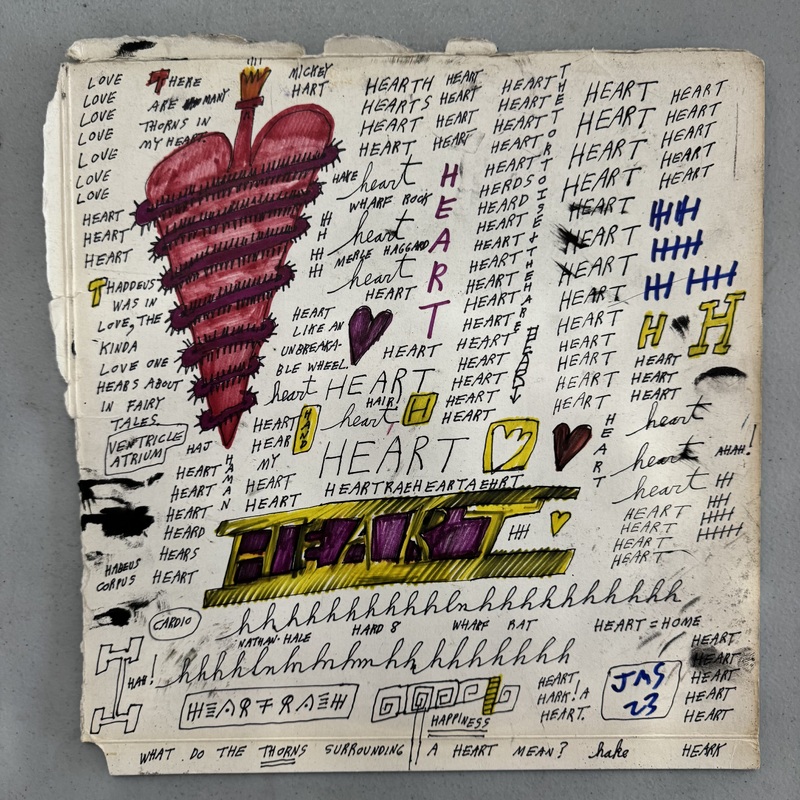 LOVE
LOVE
LOVE
LOVE
LOVE
LOVE
LOVE
HEART
HEART
HEART
THERE
ARE MANY
THORNS IN
MY HEART.
THADDEUS
WAS IN
LOVE, THE
KINDA
LOVE ONE
HEARS ABOUT
IN FAIRY
TALES.
VENTRICLE
ATRIUM
MICKEY
HART
HEARTH
HEARTS
HEART
HEART
HAKE
heart
WHARF ROCK
heart
MERLE HAGGARD
heart
HEART
HEART
LIKE AN
UNBREAKA-
BLE WHEEL.
HEART
heart HEART
HAIR!
heart H
HEART
HEART
HEART
HEART
HEART
HEART
HEART
HEART
HEART
HEART
HEART
HEART
HERDS
HEARD
HEART
HEART
HEART
HEART
HEART
HEART
HEART
HEART
HEART
HEART
HEART
HEART
HEART
HEART
HEART
HEART
HEART
HEART
HEART
HEART
HEART
HEART
HEART
HEART
HEART
HEART
HEART
H H
HEART
HEART
HEART
heart
heart
AHAH!
heart
HEART
HEART
HEART
HEART
HEART
HEAR
MY
HEART
HEART
HAND
HAJ
HAMAN
HEART
HEART
HEART
HEARD
HEARS
HEART
HEARTRAEHEARTAEHRT
HEART
HABEUS
CORPUS
CARDIO
hhhhhhhhhhhhhhhhhhhhhhh
NATHAN HALE
HARD 8
WHARF RAT
HEART = HOME
HEART
HEART
HEART
HEART
HEART
H
HAH!
HEARTRAEH
HAPPINESS
HEART
HARK! A
HEART.
JMS
23
WHAT DO THE THORNS SURROUNDING A HEART MEAN? hake HEARK